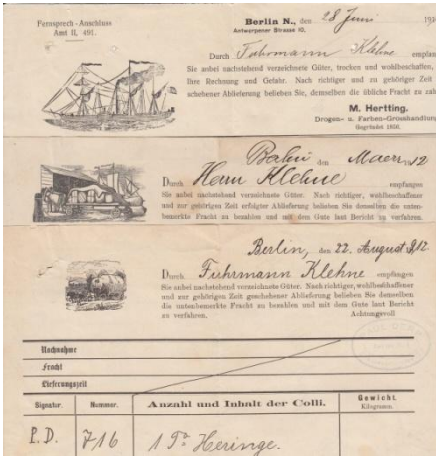 Fernsprech-Anschluss
Amt II, 491.
Berlin N., den 28 Juni 191
Antwerpener Strasse 10,
Durch Fuhrmann Klehne empfan
Sie anbei nachstehend verzeichnete Güter, trocken und wohlbeschaffen,
Ihre Rechnung und Gefahr. Nach richtiger und zu gehöriger Zeit
schehener Ablieferung belieben Sie, demselben die übliche Fracht zu zah
M. Hertting.
Drogen- u. Farben-Grosshandlun
Gegründet 1856.
den Maerz 1912
Durch Herrn Klehne empfangen
Sie anbei nachstehend verzeichnete Güter. Nach richtiger, wohlbeschaffener
und zur gehörigen Zeit erfolgter Ablieferung belieben Sie demselben die unten-
bemerkte Fracht zu bezahlen und mit dem Gute laut Bericht zu verfahren.
Berlin, den 22. August 912
Durch Fuhrmann Klehne empfangen
Sie anbei nachstehend verzeichnete Güter. Nach richtiger, wohlbeschaffener
und zur gehörigen Zeit geschehener Ablieferung belieben Sie demselben
die untenbemerkte Fracht zu bezahlen und mit dem Gute laut Bericht
zu verfahren.
Achtungsvoll
Nachnahme
Fracht
Lieferungszeit
Signatur. Nummer. Anzahl und Inhalt der Colli. Gewicht.
Kilogramm.
P.D. 716 1 To Heringe.